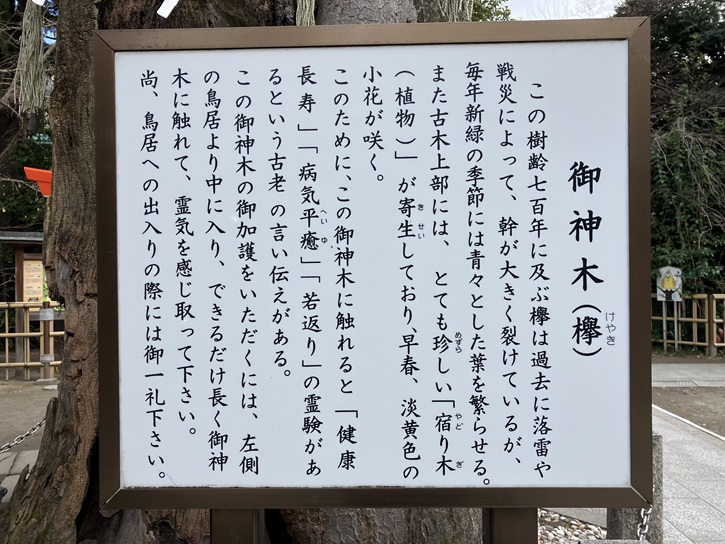 御神木(欅)
けやき
この樹齢七百年に及ぶ欅は過去に落雷や
戦災によって、幹が大きく裂けているが、
毎年新緑の季節には青々とした葉を繁らせる。
また古木上部には、とても珍しい「宿り木
めずら
やど
ぎ
(植物)」が寄生しており、早春、淡黄色の
きせい
小花が咲く。
このために、この御神木に触れると「健康
長寿」「病気平癒」「若返り」の霊験があ
へいゆ
るという古老の言い伝えがある。
この御神木の御加護をいただくには、左側
の鳥居より中に入り、できるだけ長く御神
木に触れて、霊気を感じ取って下さい。
尚、鳥居への出入りの際には御一礼下さい。